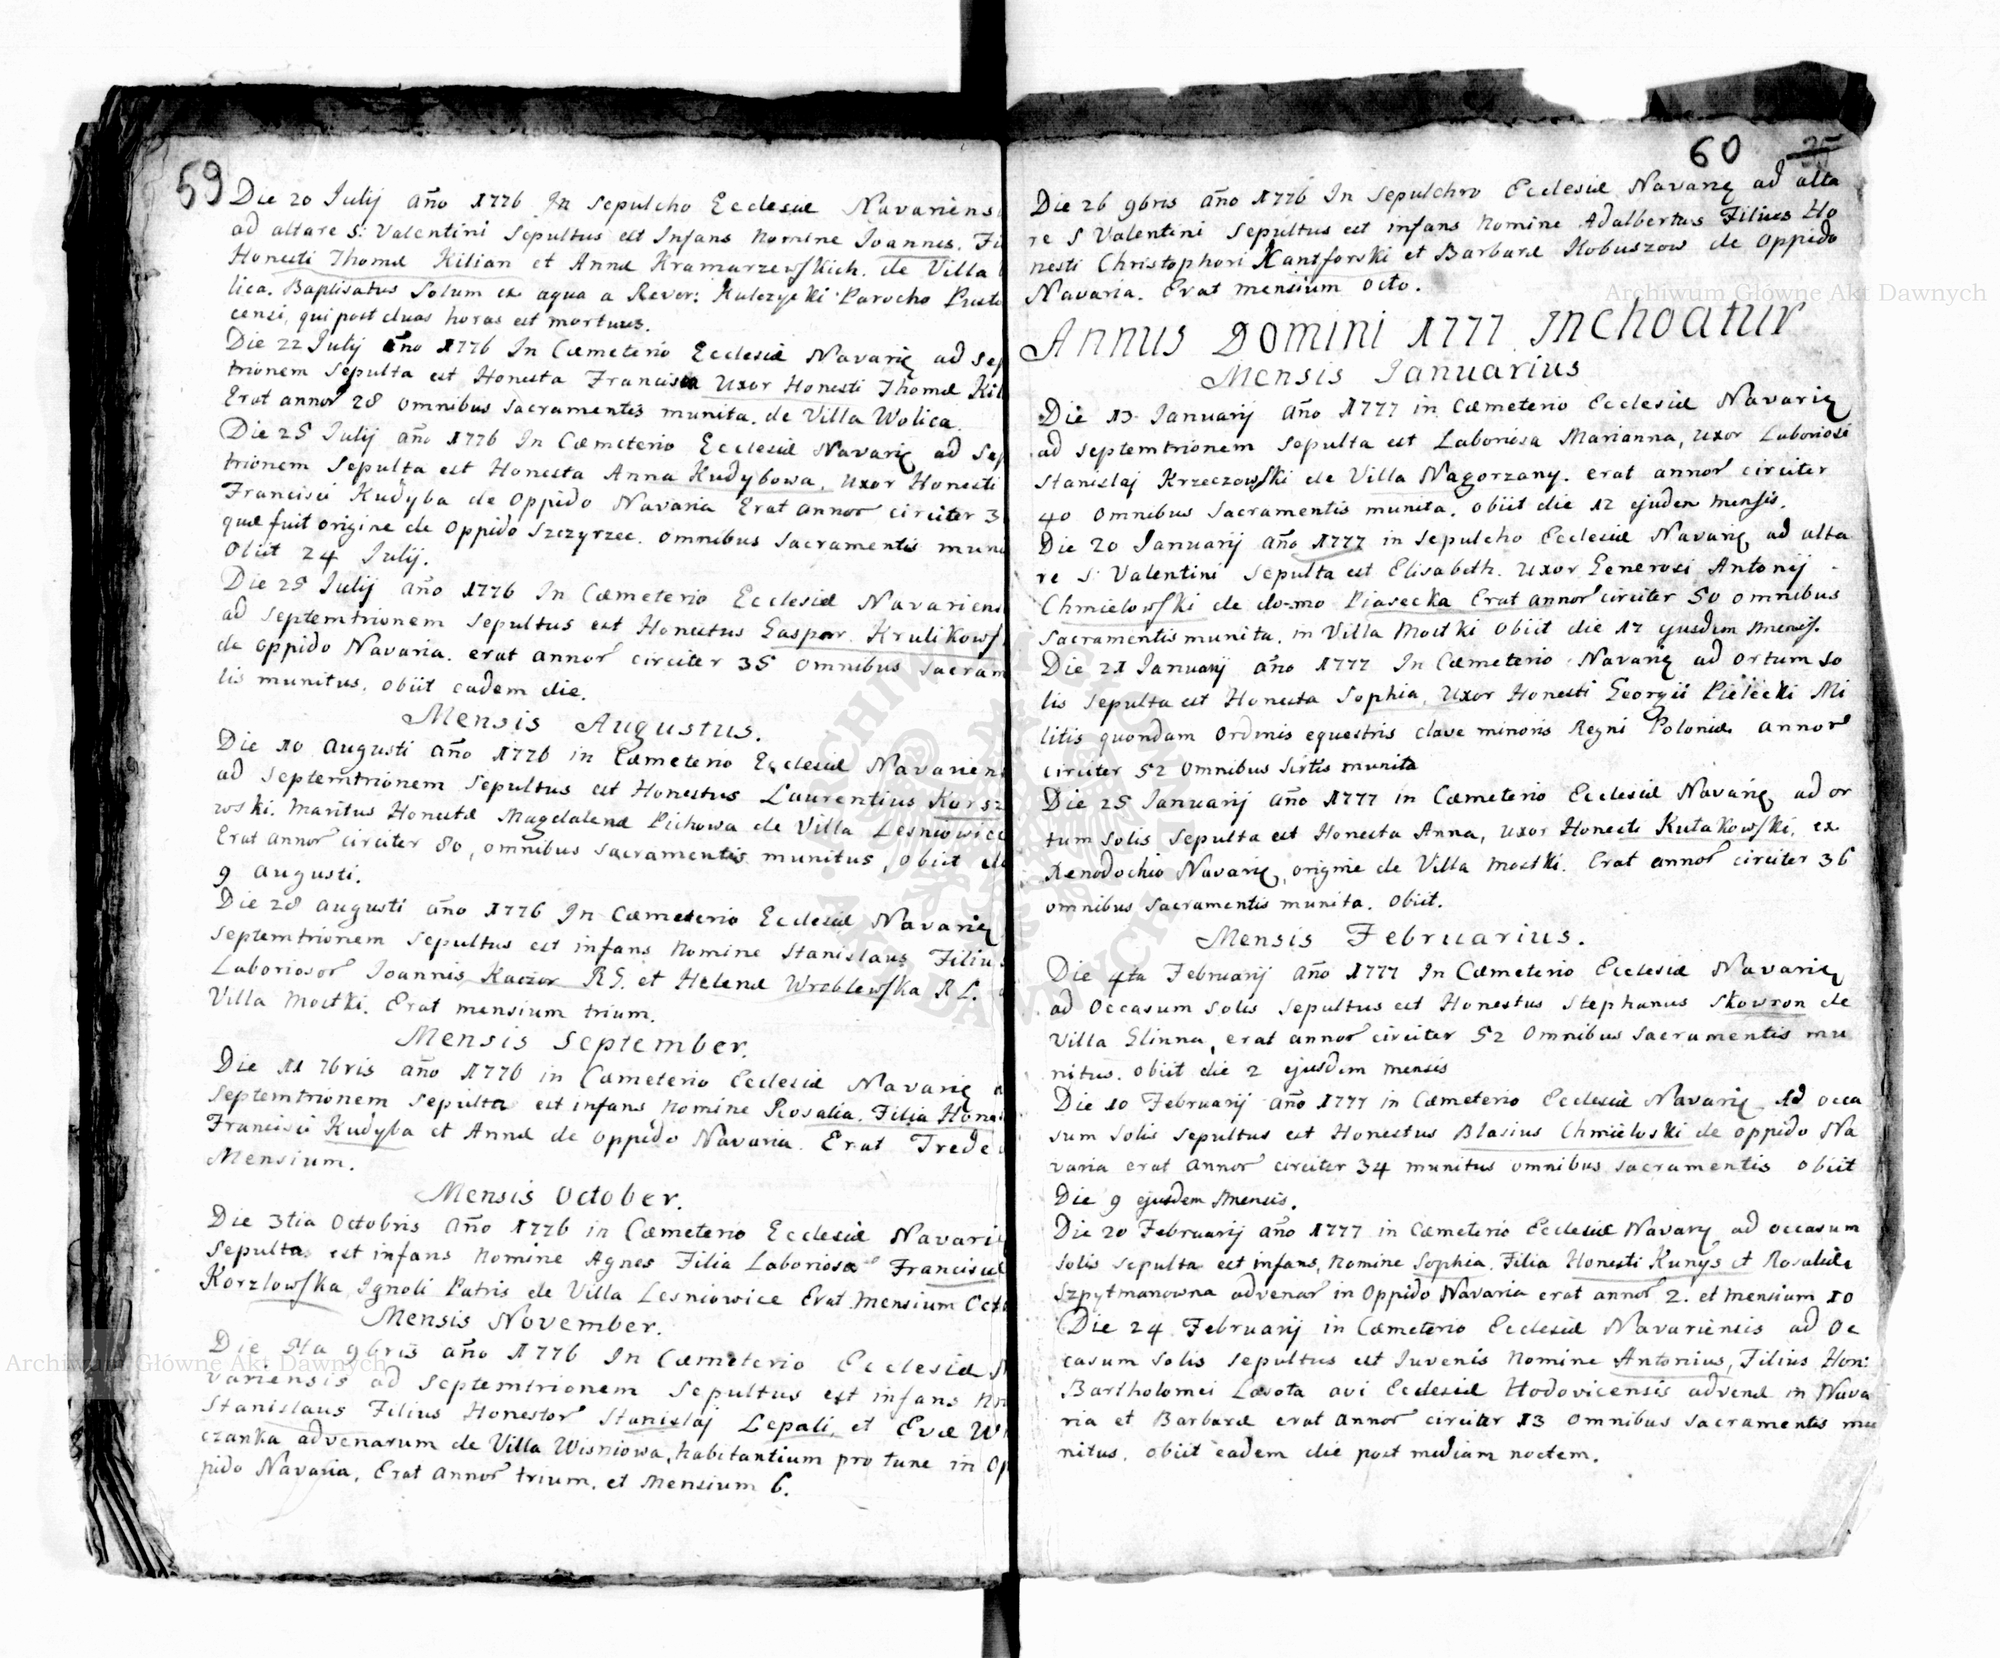 59
Die 20 Julij Año 1776 In Sepulcho Ecclesiæ Navariens
ad altare S: Valentini Sepultus est Infans Nomine Joannes. Fi
Honesti Thomæ Kilian et Annæ Kramarzewskich. de Villa
lica. Baptisatus Solum ex aqua a Rever: Kulczycki Parocho Pusto
censi, qui post duas horas est mortuus.
Die 22 Julij Año 1776 In Cæmeterio Ecclesiæ Navarię ad Sep
trionem Sepulta est Honesta Francisca Uxor Honesti Thomæ Kil
Erat annor 28 omnibus Sacramentis munita. de Villa Wolica.
Die 25 Julij año 1776 In Cæmeterio Ecclesiæ Navarię ad Sep
trionem Sepulta est Honesta Anna Kudybowa, Uxor Honesti
Francisci Kudyba de Oppido Navaria Erat annor circiter 3
quæ fuit origine de Oppido Szczyrzec. omnibus Sacramentis muni
Obiit 24 Julij.
Die 25 Julij Año 1776 In Cæmeterio Ecclesiæ Navariens
ad Septemtrionem Sepultus est Honestus Gaspar Krulikows
de oppido Navaria. erat annor circiter 35 omnibus Sacram
tis munitus. obiit eadem die.
Mensis Augustus.
Die 10 Augusti Año 1776 in Cæmeterio Ecclesiæ Navariens
ad Septemtrionem Sepultus est Honestus Laurentius Korsz
wski. Maritus Honestæ Magdalenæ Pichowa de Villa Lesniowice
Erat annor circiter 80, omnibus Sacramentis munitus, obiit di
9 Augusti.
Die 28 Augusti año 1776 In Cæmeterio Ecclesiæ Navarię
Septemtrionem Sepultus est infans Nomine Stanislaus Filiu
Laboriosor Joannis Kaczor RG. et Helenæ Wroblewska RL.
Villa Mostki. Erat mensium trium.
Mensis September.
Die 11 7bris año 1776 in Cæmeterio Ecclesiæ Navarię a
Septemtrionem Sepulta est infans Nomine Rosalia. Filia Hones
Francisci Kudyba et Annæ de oppido Navaria. Erat Trede
Mensium.
Mensis October.
Die 3tia Octobris Año 1776 in Cæmeterio Ecclesiæ Navarię
Sepulta est infans Nomine Agnes Filia Laboriosæ Franciscæ
Korzlowska Ignoti Patris de Villa Lesniowice Erat Mensium Octo
Mensis November.
Die 9bris año 1776 In Cæmeterio Ecclesiæ N
variensis ad Septemtrionem Sepultus est infans No
Stanislaus Filius Honestor Stanislaj Lepali, et Evæ W
czanka advenarum de Villa Wisniowa, habitantium pro tunc in Op
pido Navaria, Erat Annor trium, et Mensium 6.
60 35
Die 26 9bris Año 1776 In Sepulchro Ecclesiæ Navarię ad alta
re S Valentini Sepultus est infans Nomine Adalbertus Filius Ho
nesti Christophori Kantforski et Barbaræ Hobuszow de Oppido
Navaria. Erat mensium octo.
Annus Domini 1777 Inchoatur
Mensis Januarius
Die 13 Januarij Año 1777 in Cæmeterio Ecclesiæ Navarię
ad Septemtrionem Sepulta est Laboriosa Marianna, Uxor Laboriosi
Stanislaj Krzeczowski de Villa Nagorzany. erat annor circiter
40 omnibus Sacramentis munita. obiit die 12 ejuden mensis.
Die 20 Januarij Año 1777 in Sepulcho Ecclesiæ Navarię ad alta
re S: Valentini Sepulta est Elisabeth. Uxor Generosi Antonij
Chmielowski de domo Piasecka Erat annor circiter 50 omnibus
Sacramentis munita, in Villa Mostki obiit die 17 ejusdem Mensis.
Die 21 Januarij año 1777 In Cæmeterio Navarię ad Ortum So
lis Sepulta est Honesta Sophia, Uxor Honesti Georgii Pielecki Mi
litis quondam Ordinis equestris clave minoris Regni Poloniæ annor
circiter 52 omnibus Scrtis munita
Die 25 Januarij Año 1777 in Cæmeterio Ecclesiæ Navarię ad or
tum Solis Sepulta est Honesta Anna, Uxor Honesti Kutakowski, ex
Xenodochio Navarię, origine de Villa Mostki. Erat annor circiter 36
omnibus Sacramentis munita. Obiit.
Mensis Februarius.
Die 4ta Februarij Año 1777 In Cæmeterio Ecclesiæ Navarię
ad Occasum Solis Sepultus est Honestus Stephanus Skowron de
Villa Glinna, erat annor circiter 52 Omnibus Sacramentis mu
nitus. obiit die 2 ejusdem mensis
Die 10 Februarij Año 1777 in Cæmeterio Ecclesiæ Navarię Ad occa
sum Solis Sepultus est Honestus Blasius Chmieloski de oppido Na
varia erat Annor circiter 34 munitus omnibus Sacramentis obiit
Die 9 ejusdem Mensis.
Die 20 Februarij Año 1777 in Cæmeterio Ecclesiæ Navarę ad occasum
Solis Sepulta est infans, Nomine Sophia. Filia Honesti Kunys et Rosaliæ
Szpytmanowna advenar in Oppido Navaria erat annor 2. et mensium 10
Die 24 Februarij in Cæmeterio Ecclesiæ Navariensis ad Oc
casum Solis Sepultus est Juvenis Nomine Antonius, Filius Hon:
Bartholomei Lavota avi Ecclesiæ Hodovicensis advenæ in Nava
ria et Barbaræ erat annor circiter 13 omnibus Sacramentis mu
nitus, obiit eadem die post mediam noctem.
Archiwum Główne Akt Dawnych
Archiwum Główne Akt Dawnych